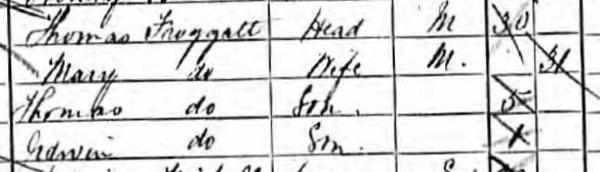 Thomas Froggatt Head M 30
Mary do Wife M. 31
Thomas do Son. 5
Edwin do Son. 1